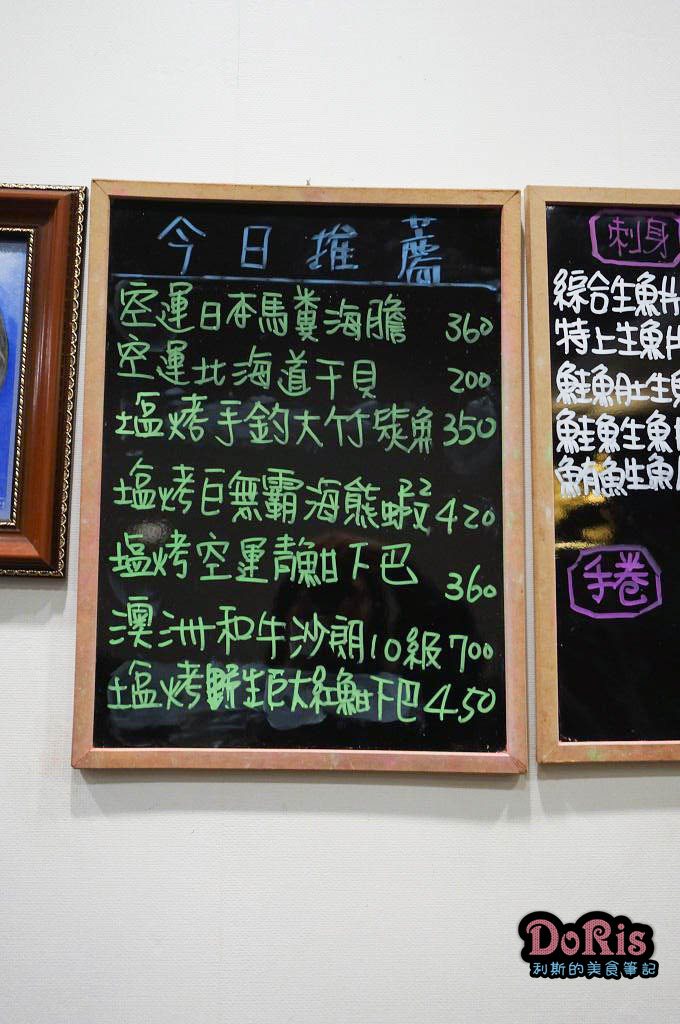 今日推薦
空運日本馬糞海膽 360
空運北海道干貝 200
塩烤手釣大竹筴魚 350
塩烤巨無霸海熊蝦 420
塩烤空運青魽下巴 360
澳洲和牛沙朗10級 700
塩烤野生巨大紅魽下巴 450
刺身
綜合生魚片
特上生魚片
鮭魚肚生魚
鮭魚生魚
鮪魚生魚
手卷
DoRis
利斯的美食筆記